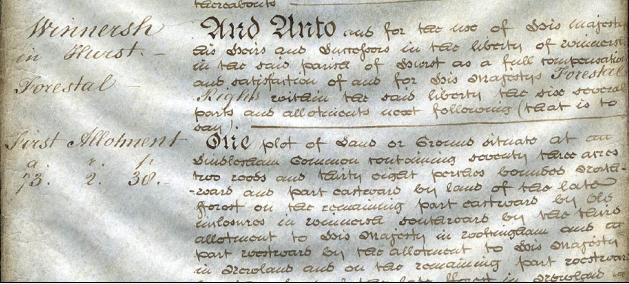 thereabouts
Winnersh
in Hurst. —
Forestal
And Unto and for the use of His Majesty
His Heirs and Successors in the liberty of Winnersh
in the said parish of Hurst as a full compensation
and satisfaction of and for His Majestys Forestal
Rights within the said liberty the six several
parts and allotments next following (that is to
say)
First Allotment
a. r. p.
73. 2. 38.
One plot of Land or Ground situate at on
Sindlesham Common containing seventy three acres
two roods and thirty eight perches bounded North-
-ward and part eastward by land of the late
forest on the remaining part eastward by Old
inclosures in Winnersh southward by the third
allotment to His Majesty in Wokingham and at
part westward by the allotment to His Majesty
in Newland and on the remaining part westward